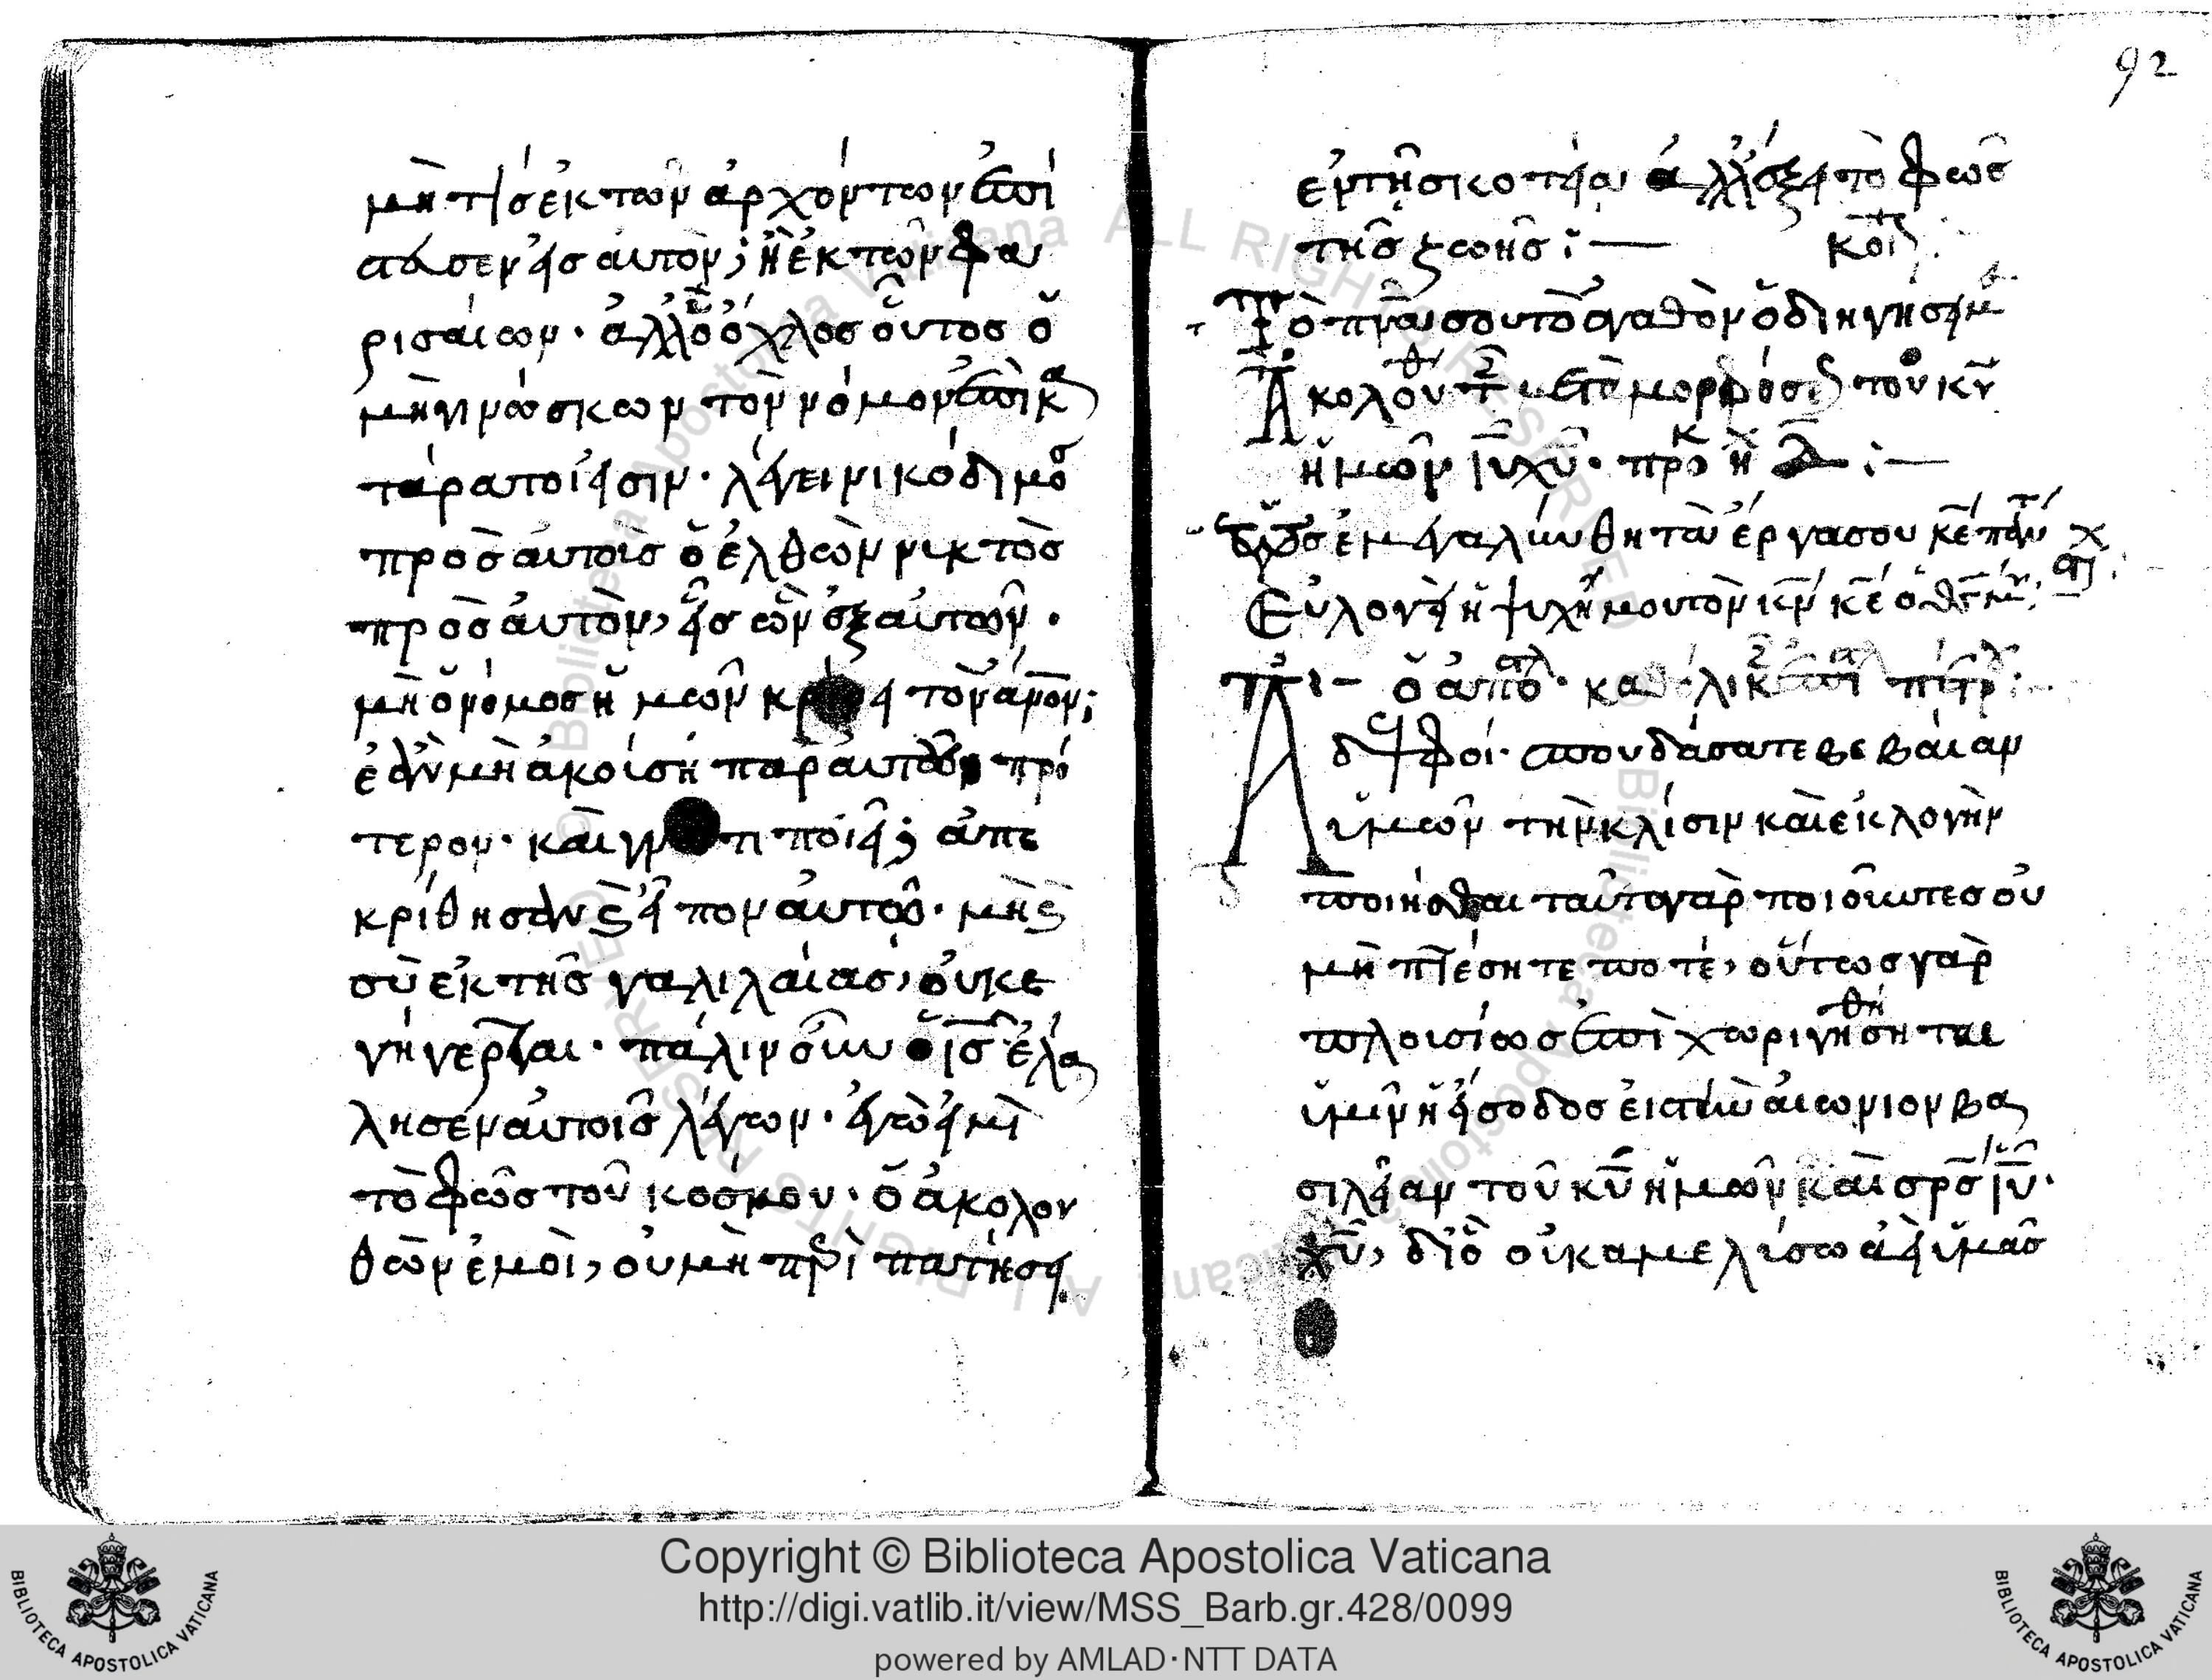 μὴ τίς ἐκ τῶν ἀρχόντων ἐπί
στευσεν εἰς αὐτὸν; ἢ ἐκ τῶν φα
ρισαίων· ἀλλ' ὁ ὄχλος οὗτος ὁ
μὴ γινώσκων τὸν νόμον ἐπικ
τάρατοί εἰσιν· λέγει νικόδιμο
πρὸς αὐτοὶς ὁ ἐλθὼν νυκτὸς
πρὸς αὐτὸν, εἷς ὢν ἐξ αὐτῶν·
μὴ ὁ νόμος ἡμῶν τὸν ἀνον;
ἐὰν μὴ ἀκοίση παρ αὐτοῦ πρό
τερον· καὶ τι ποιεῖ; ἀπε
κρίθησαν καὶ εἶπον αὐτῶ· μὴ καὶ
σὺ ἐκ τῆς γαλιλαίας, οὐκ ε
γήγερται· πάλιν οὖν ὁ ις ἐλα
λησεν αὐτοῖς λέγων· ἐγώ εἰμὶ
τὸ φῶς τοῦ κοσμου· ὁ ἀκολου
θῶν ἐμοὶ, οὐ μὴ περὶ πατήσει
92
ἐν τῆ σκοτία ἀλλ' ἕξει τὸ φῶς
τῆς ζωῆς :— κοι
ἡμῶν ιυ χυ· πρὸ :—
ἐμεγαλύνθη τὰ ἔργα σου κε
Εὐλόγει ἡ ψυχή μου τὸν κν κε ὁ θς μ
ὁ ἀπό· καθολικ ἐπι πετρ :—
Αδελφοί· σπουδάσατε βεβαίαν
ὑμῶν τὴν κλίσιν καὶ ἐκλογὴν
ποιήσθαι ταῦτα γὰρ ποιοῦντες οὐ
μὴ πτέσητε ποτέ, οὕτως γὰρ
πλοισίως ἐπὶ χωριγηθήσηται
ὑμῖν ἡ εἴσοδος εἰς τὴν αἰώνιον βα
σιλείαν τοῦ κυ ἡμῶν καὶ σρς ιυ
χυ, διὸ οὐκ αμελίσω ἀεὶ ὑμᾶς
Copyright © Biblioteca Apostolica Vaticana
http://digi.vatlib.it/view/MSS_Barb.gr.428/0099
powered by AMLAD·NTT DATA
BIBLIOTECA APOSTOLICA VATICANA
BIBLIOTECA APOSTOLICA VATICANA